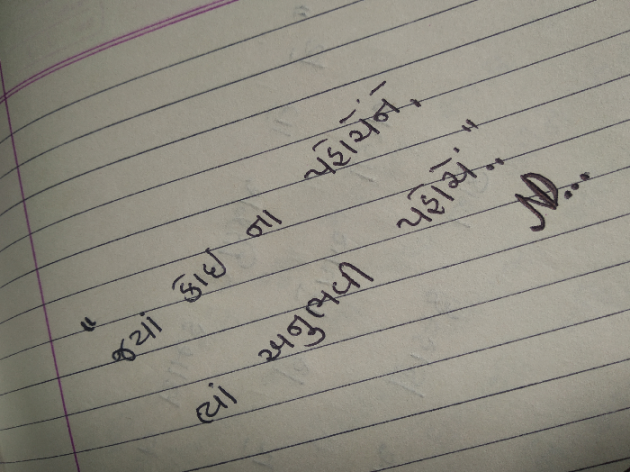 "જ્યાં કોઇ ના પહોચેને,
ત્યાં અનુભવી પહોચે.."
ND...